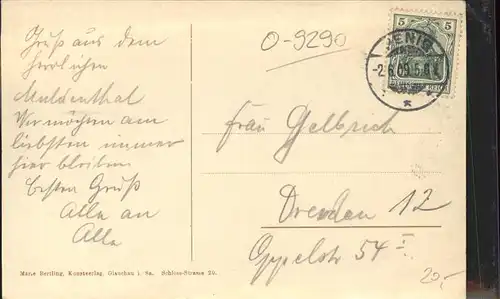 Gruß aus dem
herrlichen
Muldenthal
Wir möchten am
liebsten immer
hier bleiben
besten Gruß
Alle an
Alle
O-9290
5 5
PENIG
-2.6.09.5-6
Frau Gelbrich
Dresden 12
Oppelstr 54 I.
20,-
Marie Bertling, Kunstverlag, Glauchau i. Sa. Schloss-Strasse 29.